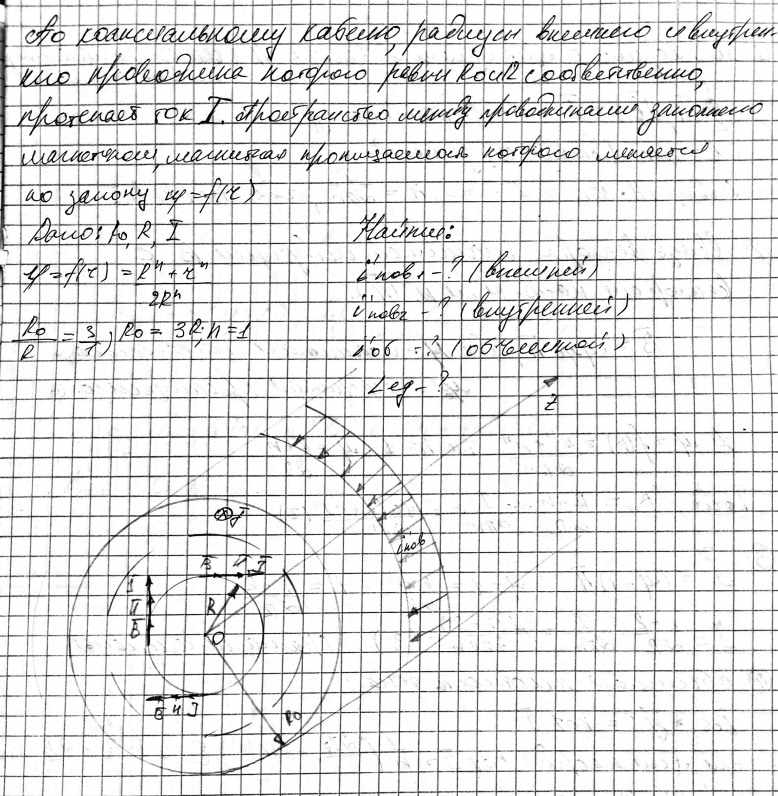 По коаксиальному кабелю, радиусы внешнего и внутрен-
него проводника которого равны R₀ и R соответственно,
протекает ток I. Пространство между проводниками заполнено
магнетиком, магнитная проницаемость которого меняется
по закону μ=f(r)
Дано: R₀, R, I
Найти:
μ=f(r)=(Rⁿ+rⁿ)/2Rⁿ
i'пов1 - ? (внешней)
R₀/R = 3/1; R₀ = 3R; n=1
i'пов2 - ? (внутренней)
i'об - ? (объемной)
Lед - ?
Z
i'пов
⊗J
B H J
J
H
B
R
O
B H J
R₀